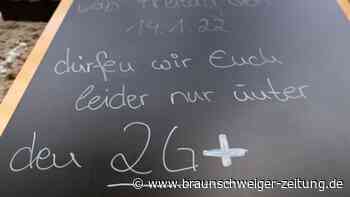 14.1.22
dürfen wir Euch
leider nur unter
den 2G+
www.braunschweiger-zeitung.de